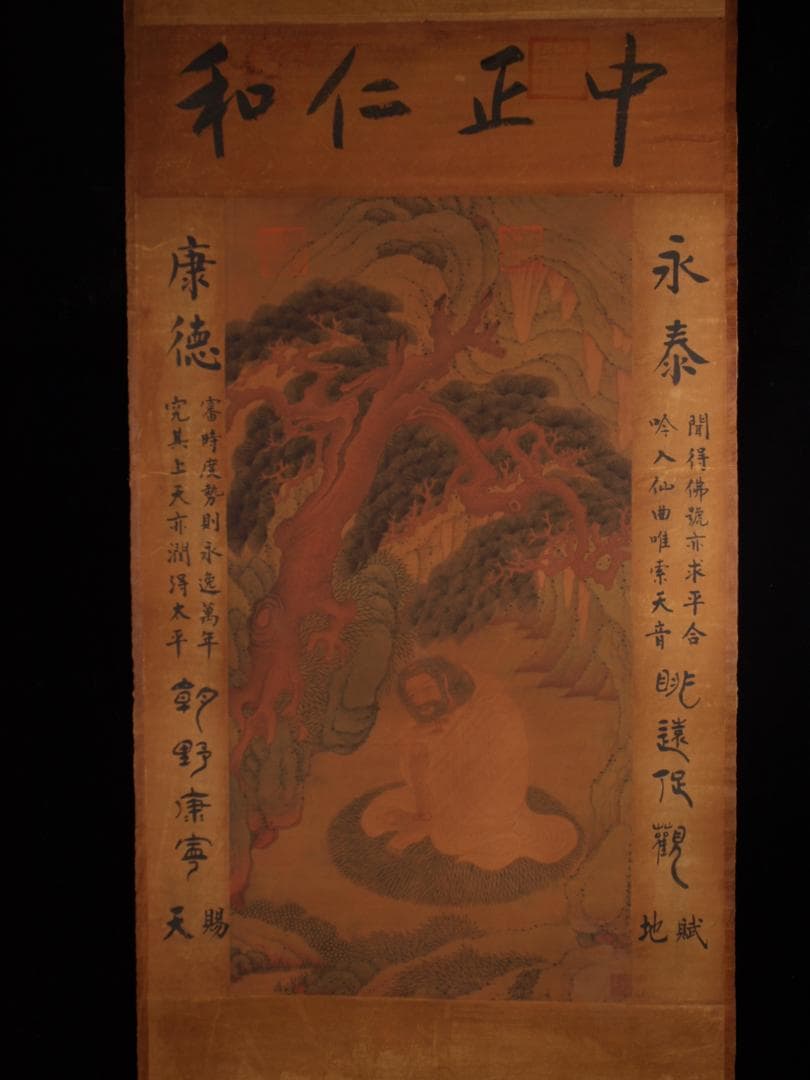 中正仁和
永泰
聞得佛號亦求平合
吟入仙曲唯索天音
眺遠促觀
賦地
康德
審時度勢則永逸萬年
究其上天亦潤得太平
朝野康寧
賜天